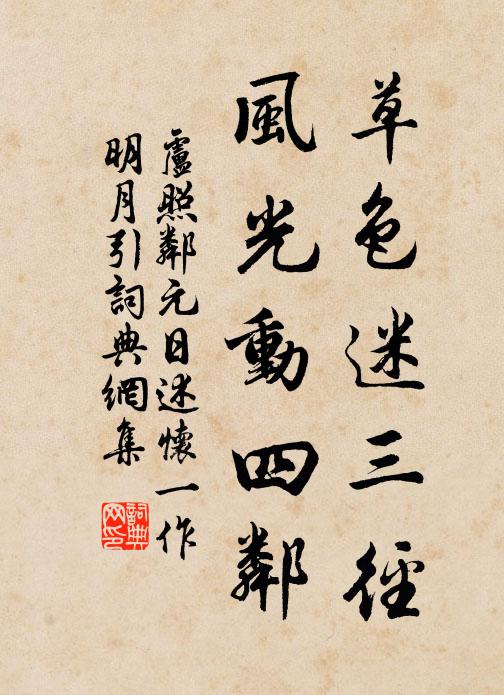 草色迷三徑
風光動四鄰
盧照鄰元日述懷一作
明月引詞典網集
詞典
网印